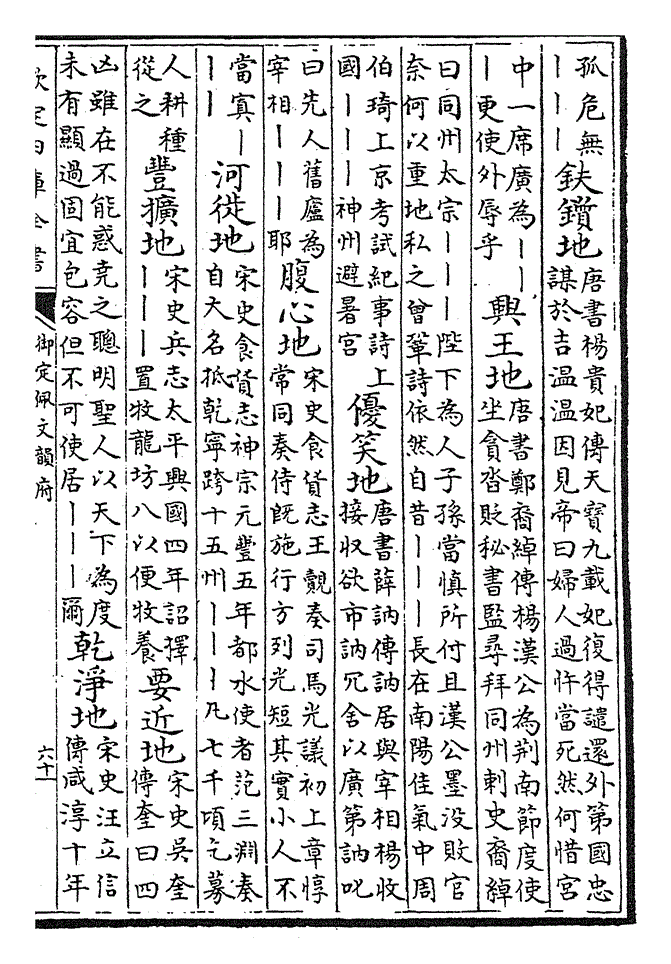 孤危無
｜｜｜
鈇鑕地
唐書楊貴妃傳天寶九載妃復得譴還外第國忠
謀於吉溫溫因見帝曰婦人過忤當死然何惜宮
中一席廣為｜｜
｜更使外辱乎
興王地
唐書鄭裔綽傳楊漢公為荆南節度使
坐貪沓貶秘書監尋拜同州刺史裔綽
曰同州太宗｜｜｜陛下為人子孫當慎所付且漢公墨没敗官
奈何以重地私之曾鞏詩依然自昔｜｜｜長在南陽佳氣中周
伯琦上京考試紀事詩上
國｜｜｜神州避暑宮
優笑地
唐書薛訥傳訥居與宰相楊收
接收欲市訥冗舍以廣第訥叱
曰先人舊廬為
宰相｜｜｜耶
腹心地
宋史食貨志王覿奏司馬光議初上章惇
常同奏侍既施行方列光短其實小人不
當寘｜
｜｜
河徙地
宋史食貨志神宗元豐五年都水使者范三淵奏
自大名抵乾寧跨十五州｜｜｜凡七千項乞募
人耕種
從之
豐擴地
宋史兵志太平興國四年詔擇
｜｜｜置牧龍坊八以便牧養
要近地
宋史吳奎
傳奎曰四
凶雖在不能惑堯之聰明聖人以天下為度
未有顯過固宜包容但不可使居｜｜｜爾
乾淨地
宋史汪立信
傳咸淳十年
欽定四庫全書
御定佩文韻府
六十